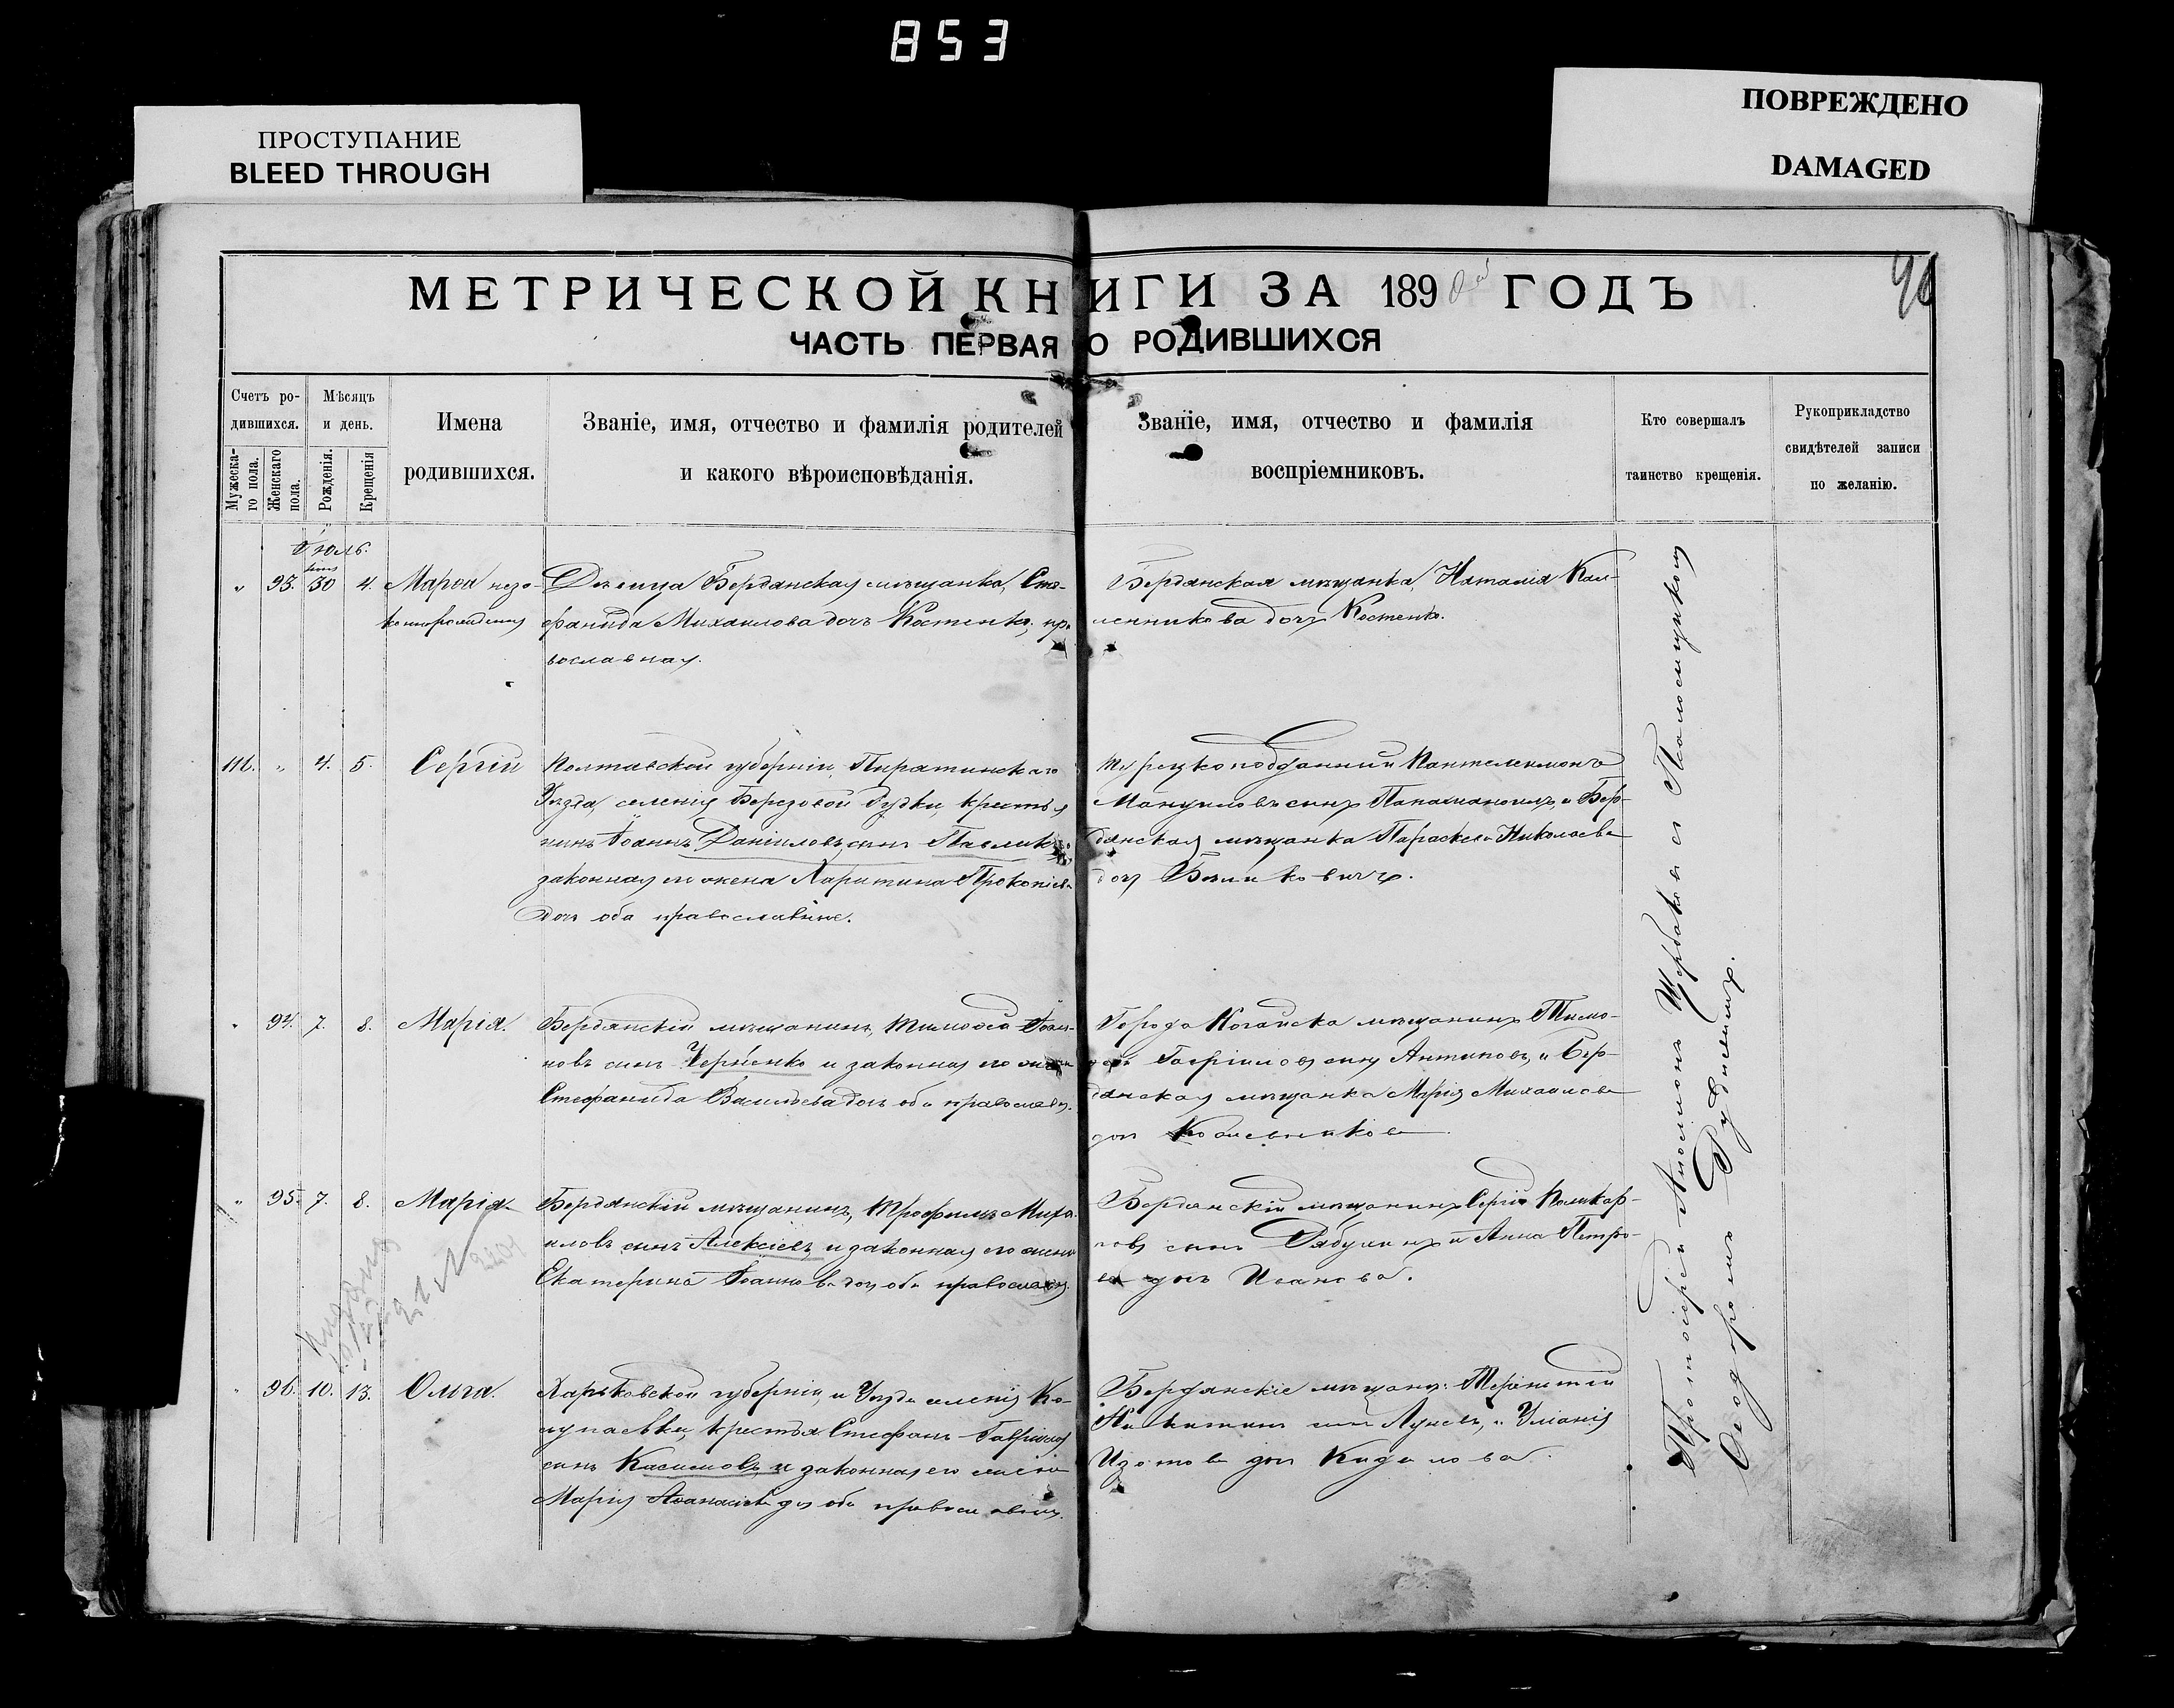 853
ПРОСТУПАНИЕ
BLEED THROUGH
ПОВРЕЖДЕНО
DAMAGED
МЕТРИЧЕСКОЙ КНИГИ ЗА 1890й ГОДЪ
ЧАСТЬ ПЕРВАЯ О РОДИВШИХСЯ
Счетъ ро-
дившихся.
Мужеска-
го пола.
Женскаго
пола.
Мѣсяцъ
и день.
Рожденія.
Крещенія
Имена
родившихся.
Званіе, имя, отчество и фамилія родителей
и какого вѣроисповѣданія.
Званіе, имя, отчество и фамилія
воспріемниковъ.
Кто совершалъ
таинство крещенія.
Рукоприкладство
свидѣтелей записи
по желанію.
Іюль.
93. 30 4. Марѳа неза-
Дѣвица Бердянская мѣщанка, Сте-
фанида Михаилова дочь Костенко, пра
вославная.
Бердянская мѣщанка, Наталія Кал-
ленникова дочь Костенко.
111. 4. 5. Сергій
Полтавской губерніи, Пирятинскаго
Уѣзда, селенія Березовой Рудки, крестья
нинъ Іоаннъ Даніиловъ сынъ Павлик
законная его жена Харитина Прокопіева
дочь оба православные.
Турецкоподданный Пантелеимонъ
Мануиловъ сынъ и Бер-
дянская мѣщанка Параскева Николаева
дочь
94. 7. 8. Марія.
Бердянскій мѣщанинъ, Тимоѳей Іоан-
новъ сынъ Черненко и законная его жена
Стефанида Васильева дочь оба православн.
Города Ногайска мѣщанинъ Тимо-
ѳей Гавріиловъ сынъ Антиповъ, и Бер-
дянская мѣщанка Марія Михаилова
дочь
95. 7. 8. Марія
Бердянскій мѣщанинъ, Трофимъ Миха
иловъ сынъ Алексѣевъ и законная его жена
Екатерина Іоаннова дочь оба православн.
Бердянскій мѣщанинъ Сергій Поликар-
повъ сынъ и Анна Петро-
ва дочь Иванова.
96. 10. 13. Ольга.
Харьковской губерніи, и Уѣзда селенія Ко-
лупаевки, крестья Стефанъ Гавріиловъ
сынъ Касимовъ и законная его жена
Марія Аѳанасіева дочь оба православн.
Бердянскіе мѣщане: Терентій
Никитинъ сынъ и Уліанія
Изотова дочь
Протоіерей Щербаковъ съ Псаломщикомъ
Ѳеодоромъ